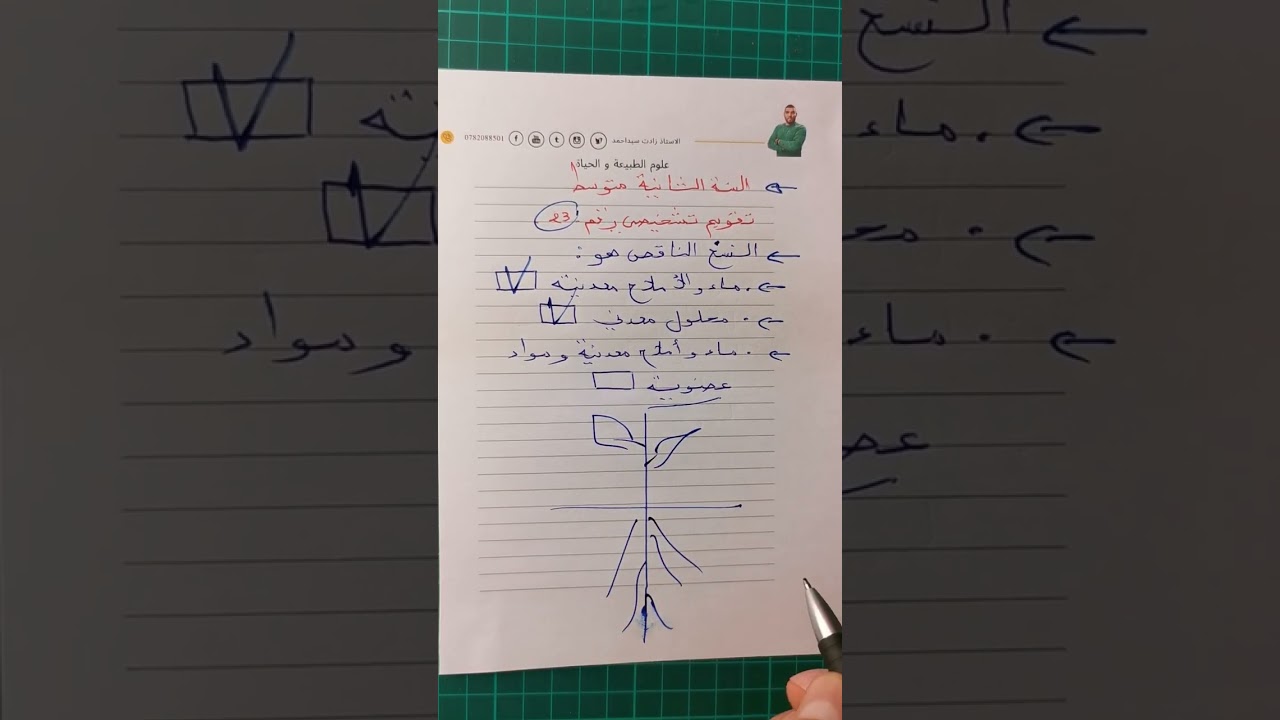 الاستاذ زادت سيداحمد 0782088501
علوم الطبيعة و الحياة
← السنة الثانية متوسط
تقويم تشخيصي رقم 23
← النسغ الناقص هو :
← . ماء و الأملاح معدنية
← . محلول معدني
← . ماء و أملاح معدنية و مواد
عضوية